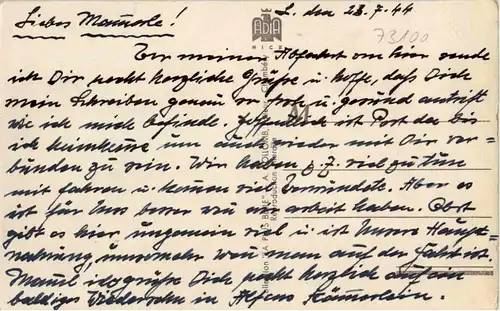 Liebes Mamerle! L. den 23.7.44
73100
ADIA
NICE
Vor meiner Abfahrt von hier sende
ich Dir recht herzliche Grüße u. hoffe, daß Dich
mein Schreiben genau so froh u. gesund antrifft
wie ich mich befinde. Hoffentlich ist Post da bis
ich heimkomme um auch wieder mit Dir ver-
bunden zu sein. Wir haben z. Z. viel zu tun
mit fahren u. kommen viel Verwundete. Aber es
ist für Uns besser wen wir arbeit haben. Obst
gibt es hier ungemein viel u. ist Unsere Haupt=
nahrung, umsomehr wen man auf der Fahrt ist.
grüße Dich recht herzlich auf ein
baldiges Wiedersehn in